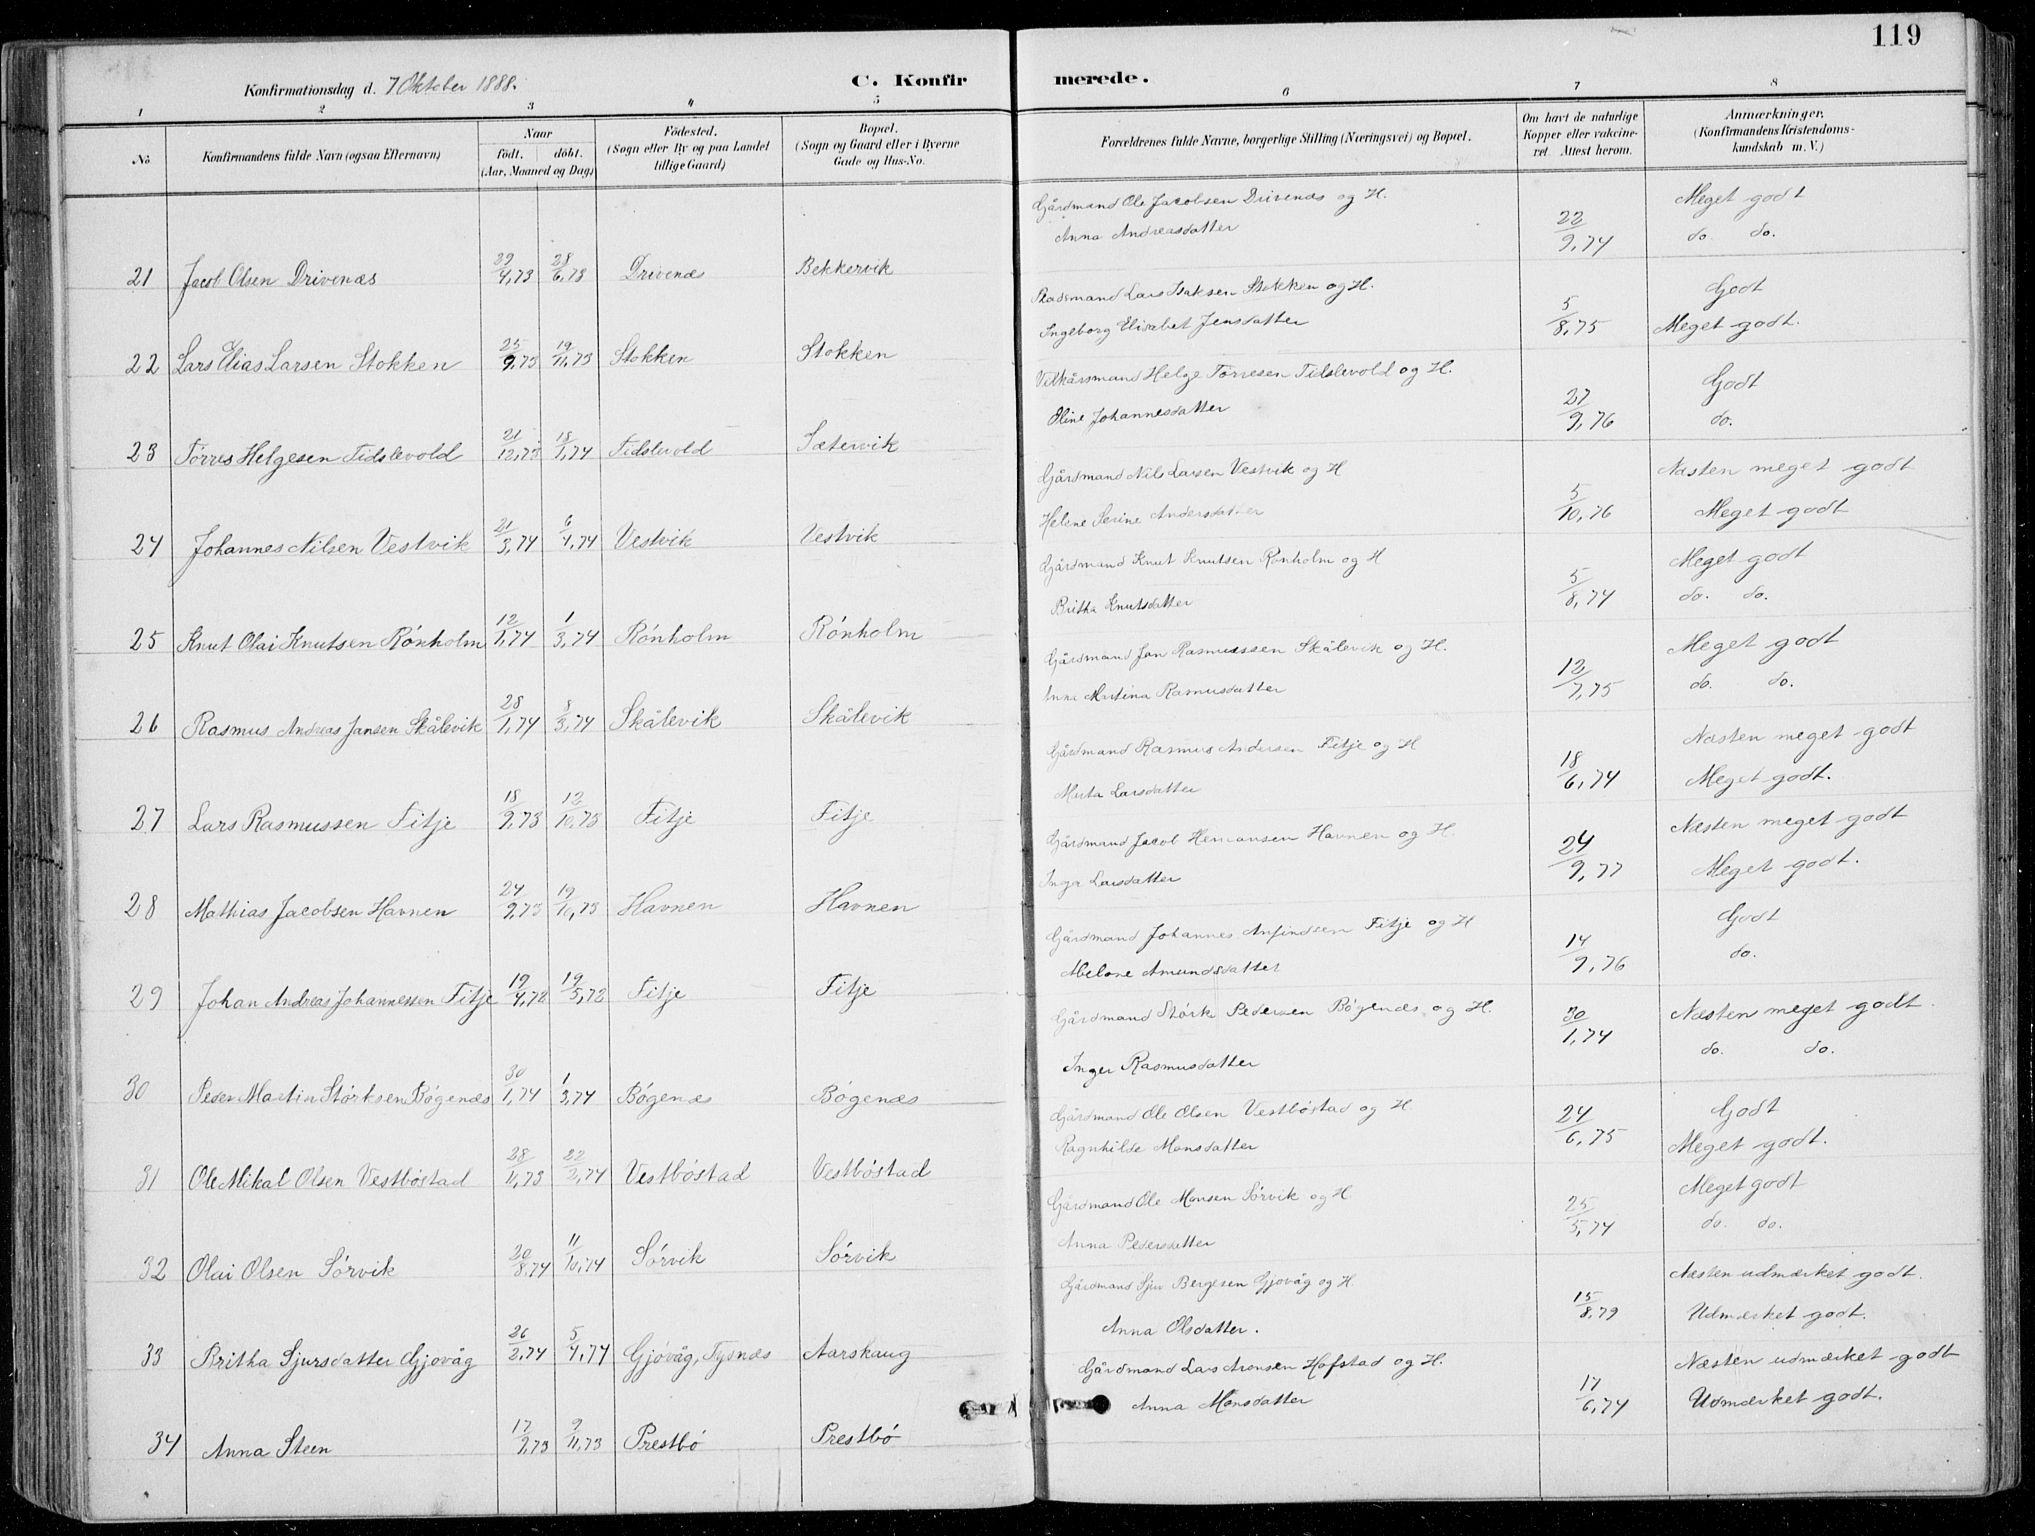 119
Konfirmationsdag d. 7 Oktober 1888.
C. Konfirmerede.
1 2 3 4 5 6 7 8
No
Konfirmandens fulde Navn (ogsaa Efternavn)
Naar
født. døbt.
(Aar, Maaned og Dag)
Fødested.
(Sogn eller By og paa Landet
tillige Gaard)
Bopæl.
(Sogn og Gaard eller i Byerne
Gade og Hus-No.
Forældrenes fulde Navne, borgerlige Stilling (Næringsvei) og Bopæl.
Om havt de naturlige
Kopper eller vakcine-
ret. Attest herom.
Anmærkninger.
(Konfirmandens Kristendoms-
kundskab m. V.)
21 Jacob Olsen Drivenæs 4,73 28/6,73 Drivenæs Bekkervik
Gårdmand Ole Jacobsen Drivenæs og H.
Anna Andreasdatter
22/9,74
Meget godt
do. do.
22 Lars Elias Larsen Stokken 25/9,73 19/11,73 Stokken Stokken
Lars Isaksen Stokken og H.
Ingeborg Elisabet Jensdatter
5/8,75
Godt
Meget godt.
23 Tørres Helgesen Tidslevold 21/12,73 18/1,74 Tidslevold Sætervik
Vilkårsmand Helge Tørresen Tidslevold og H.
Eline Johannesdatter
27/9,76
Godt
do.
24 Johannes Nilsen Vestvik 21/3,74 6/4,74 Vestvik Vestvik
Gårdmand Nils Larsen Vestvik og H
Helene Serine Andersdatter
5/10,76
Næsten meget godt
Meget godt
25 Knut Olai Knutsen Rønholm 12/1,74 1/3,74 Rønholm Rønholm
Gårdmand Knut Knutsen Rønholm og H
Britha Knutsdatter
5/8,74
Meget godt
do. do.
26 Rasmus Andreas Jansen Skålevik 28/1,74 8/3,74 Skålevik Skålevik
Gårdmand Jan Rasmussen Skålevik og H.
Anna Martina Rasmusdatter
12/7,75
Meget godt
do. do.
27 Lars Rasmussen Fitje 18/9,73 12/10,73 Fitje Fitje
Gårdmand Rasmus Andersen Fitje og H
Marta Larsdatter
18/6,74
Næsten meget godt
Meget godt.
28 Mathias Jacobsen Havnen 24/9,73 19/10,73 Havnen Havnen
Gårdmand Jacob Hermansen Havnen og H.
Inger Larsdatter
24/9,77
Næsten meget godt
Meget godt.
29 Johan Andreas Johannessen Fitje 19/4,72 19/5,72 Fitje Fitje
Gårdmand Johannes Anfindsen Fitje og H
Abelone Amundsdatter
14/9,76
Godt
do.
30 Peder Martin Størksen Bøgenæs 30/1,74 1/3,74 Bøgenæs Bøgenæs
Gårdmand Størk Pedersen Bøgenæs og H.
Inger Rasmusdatter
30/1,74
Næsten meget godt
do. do.
31 Ole Mikal Olsen Vestbøstad 28/11,73 22/2,74 Vestbøstad Vestbøstad
Gårdmand Ole Olsen Vestbøstad og H.
Ragnhilde Monsdatter
24/6,75
Godt
Meget godt.
32 Olai Olsen Sørvik 20/8,74 11/10,74 Sørvik Sørvik
Gårdmand Ole Monsen Sørvik og H
Anna Pedersdatter
25/5,74
Meget godt
do. do.
33 Britha Sjursdatter Gjøvåg 26/2,74 5/4,74 Gjøvåg, Tysnæs Aarskaug
Gårdmand Sjur Bergesen Gjøvåg og H.
Anna Olsdatter.
15/8,79
Næsten udmærket godt.
Udmærket godt.
34 Anna Steen 17/9,73 9/11,73 Prestbø Prestbø
Gårdmand Lars Aronsen Hofstad og H.
Anna Monsdatter
17/6,74
Næsten udmærket godt
Udmærket godt.